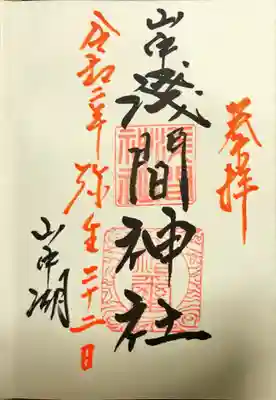 奉拝
山中浅間神社
令和二年弥生二十二日
山中湖